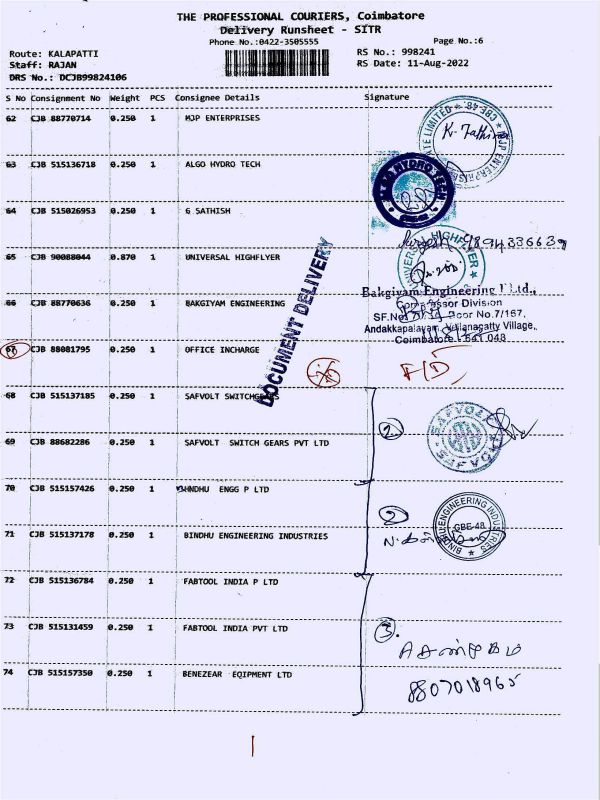 THE PROFESSIONAL COURIERS, Coimbatore
Delivery Runsheet - SITR
Phone No.:0422-3505555 Page No.:6
Route: KALAPATTI RS No.: 998241
Staff: RAJAN RS Date: 11-Aug-2022
DRS No.: DCJB99824106
S No Consignment No Weight PCS Consignee Details Signature
62 CJB 88770714 0.250 1 MJP ENTERPRISES
63 CJB 515136718 0.250 1 ALGO HYDRO TECH
64 CJB 515026953 0.250 1 G SATHISH
9894336639
65 CJB 90088044 0.870 1 UNIVERSAL HIGHFLYER
UNIVERSAL HIGHFLYER
DOCUMENT DELIVERY
66 CJB 88770636 0.250 1 BAKGIYAM ENGINEERING
Bakgiyam Engineering P Ltd.,
Compressor Division
Door No.7/167,
Andakkapalayam, Village,
Coimbatore - 641 048
67 CJB 88081795 0.250 1 OFFICE INCHARGE
F/D
68 CJB 515137185 0.250 1 SAFVOLT SWITCHGEARS
2.
SAFVOLT
69 CJB 88682286 0.250 1 SAFVOLT SWITCH GEARS PVT LTD
70 CJB 515157426 0.250 1 ENGG P LTD
2
BINDHU ENGINEERING INDUSTRIES
CBE-48
71 CJB 515137178 0.250 1 BINDHU ENGINEERING INDUSTRIES
72 CJB 515136784 0.250 1 FABTOOL INDIA P LTD
73 CJB 515131459 0.250 1 FABTOOL INDIA PVT LTD
3.
74 CJB 515157350 0.250 1 BENEZEAR EQIPMENT LTD
8807018965